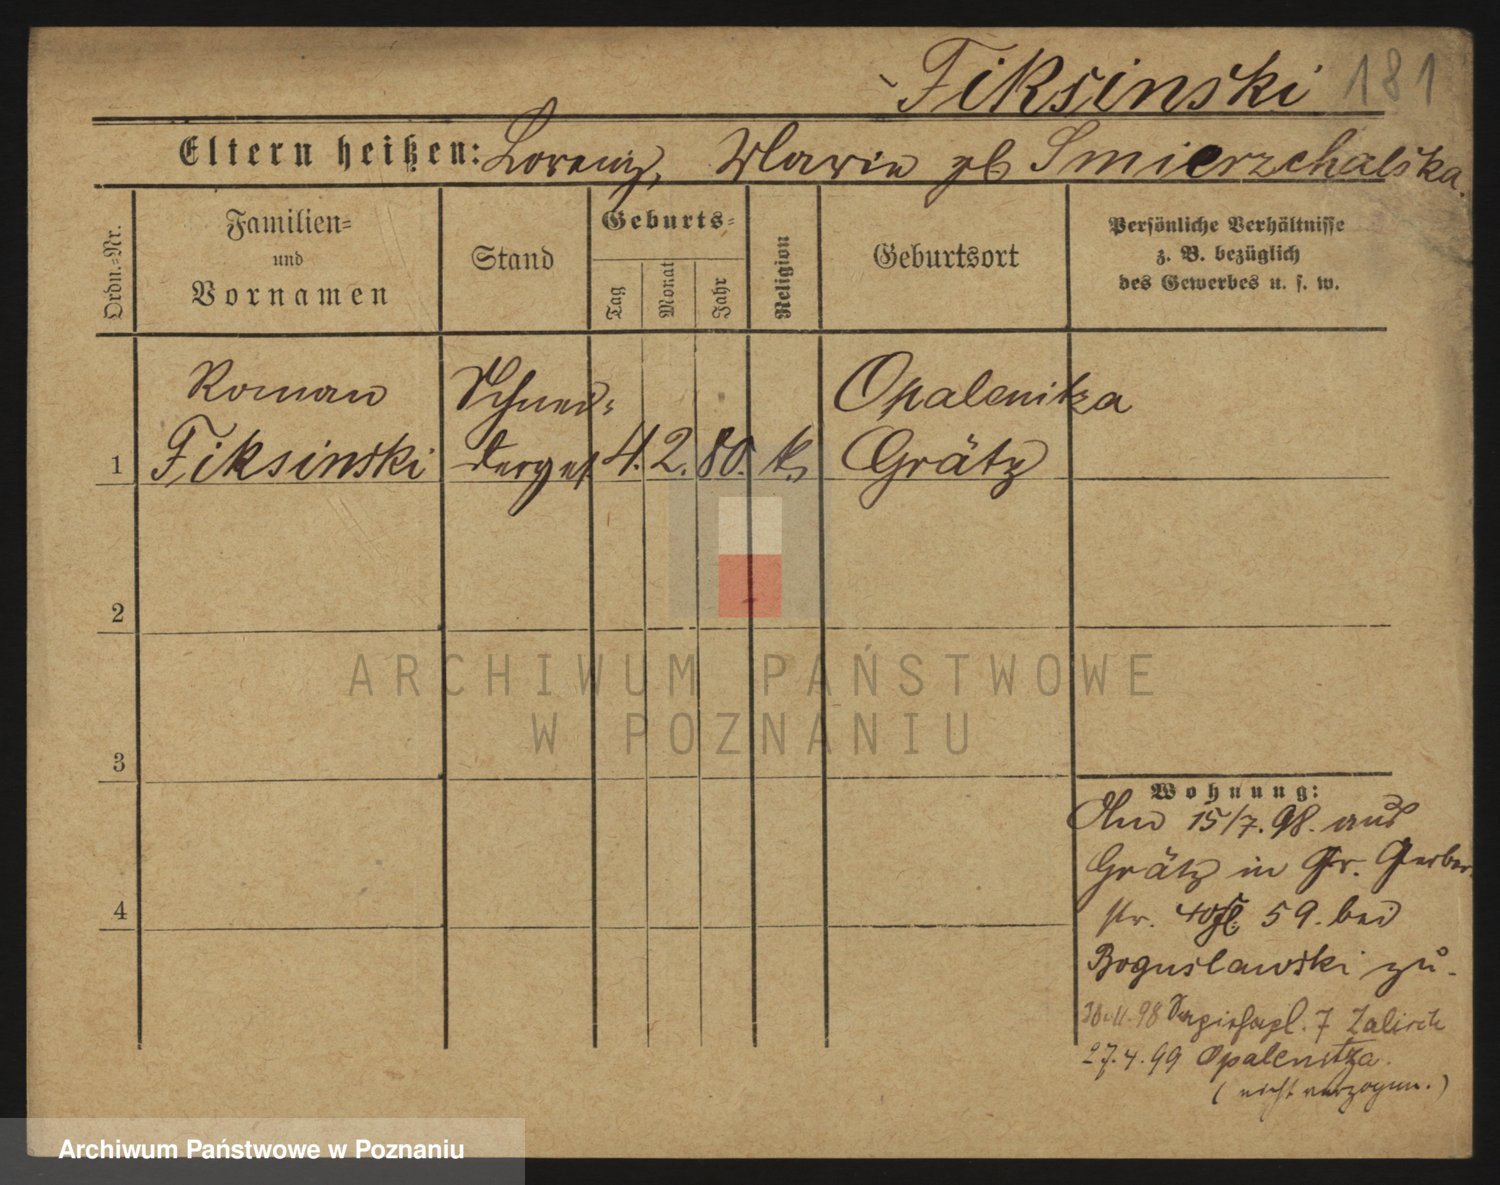 Fiksinski 181
Eltern heißen: Lorenz, Marie gb Smierzchalska.
Ordn.-Nr.
Familien-
und
Vornamen
Stand
Geburts-
Tag
Monat
Jahr
Religion
Geburtsort
Persönliche Verhältnisse
z. B. bezüglich
des Gewerbes u. s. w.
Roman Schnei- Opalenitza
1 Fiksinski derges. 4. 2. 80. k. Grätz
2
3
4
ARCHIWUM PAŃSTWOWE
W POZNANIU
Wohnung:
Am 15/7. 98. aus
Grätz in Gr. Gerber
str. 59. bei
Boguslawski zu.
98 Sapiehapl. 7
27.4.99 Opalenitza.
(nicht verzogen.)
Archiwum Państwowe w Poznaniu